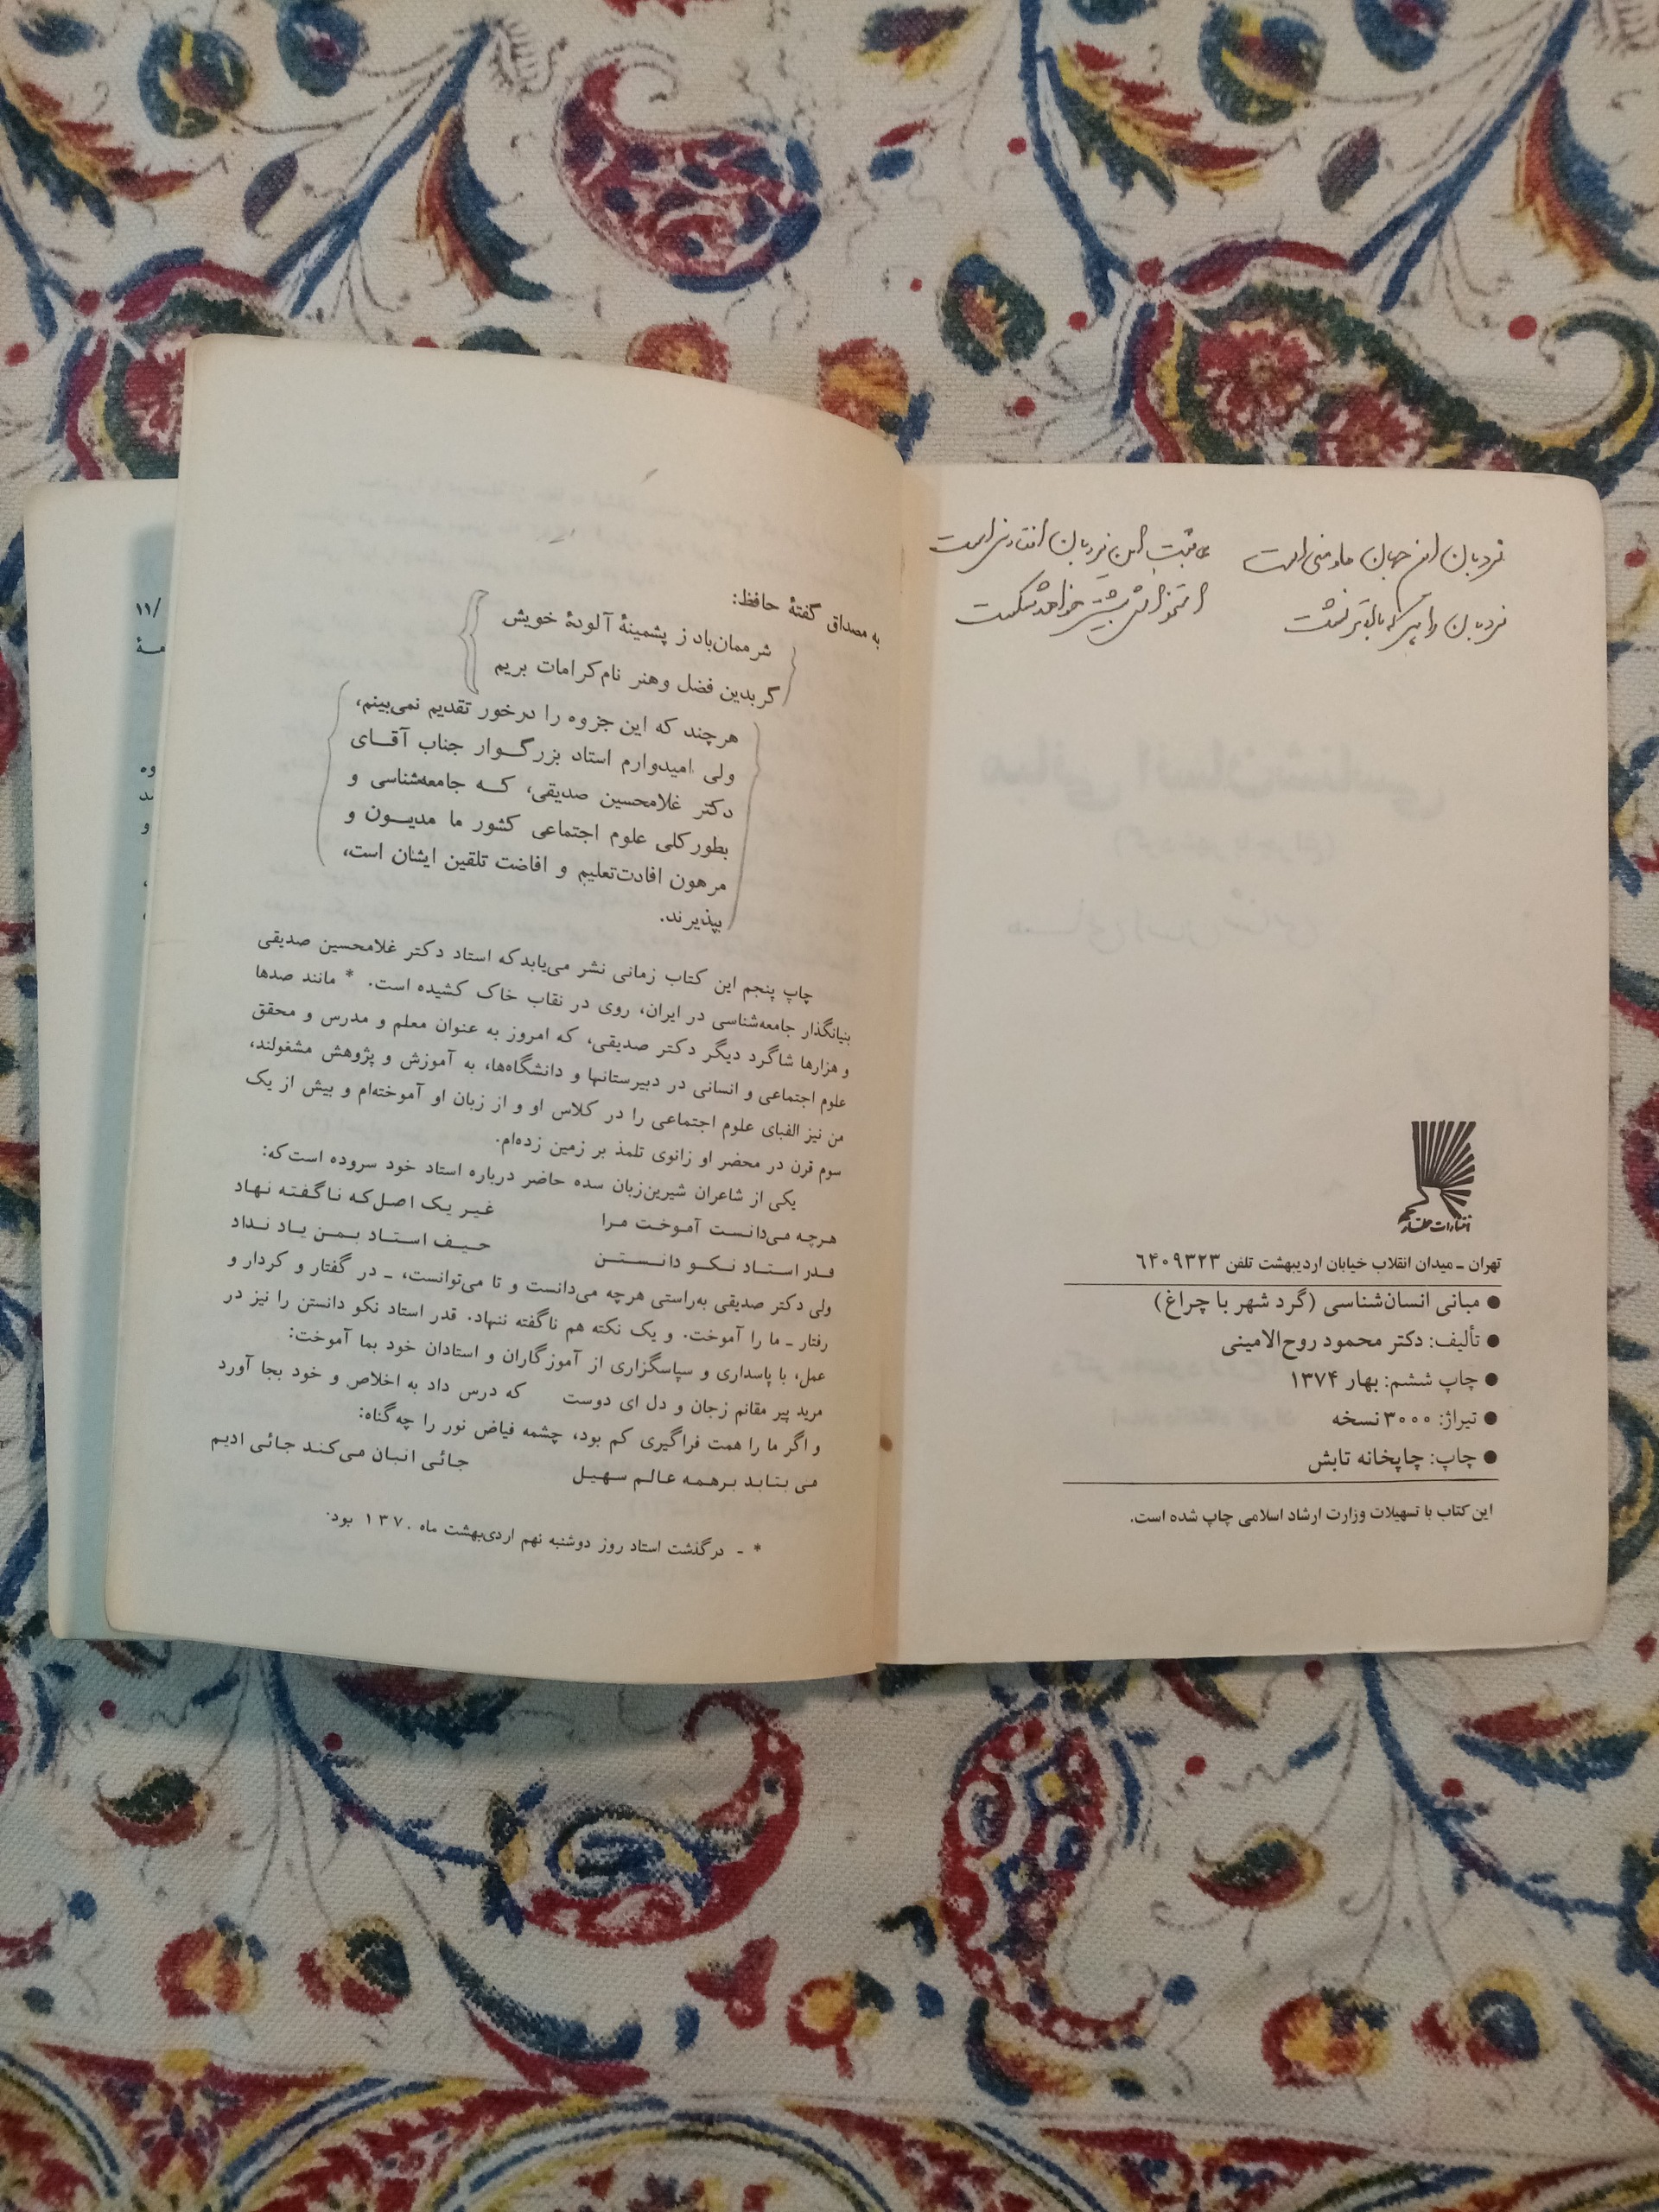 نردبان این جهان ما و منی است عاقبت این نردبان افتادنی است
نردبان را هر که بالاتر نشست استخوانش بیشتر خواهد شکست
انتشارات عطار
تهران ـ میدان انقلاب خیابان اردیبهشت تلفن ۶۴۰۹۳۲۳
● مبانی انسان‌شناسی (گرد شهر با چراغ)
● تألیف: دکتر محمود روح‌الامینی
● چاپ ششم: بهار ۱۳۷۴
● تیراژ: ۳۰۰۰ نسخه
● چاپ: چاپخانه تابش
این کتاب با تسهیلات وزارت ارشاد اسلامی چاپ شده است.
به مصداق گفتهٔ حافظ:
شرممان‌باد ز پشمینهٔ آلودهٔ خویش
گر بدین فضل وهنر نام‌کرامات بریم
هرچند که این جزوه را درخور تقدیم نمی‌بینم،
ولی امیدوارم استاد بزرگوار جناب آقای
دکتر غلامحسین صدیقی، که جامعه‌شناسی و
بطورکلی علوم اجتماعی کشور ما مدیون و
مرهون افادت‌تعلیم و افاضت تلقین ایشان است،
بپذیرند.
چاپ پنجم این کتاب زمانی نشر می‌یابدکه استاد دکتر غلامحسین صدیقی
بنیانگذار جامعه‌شناسی در ایران، روی در نقاب خاک کشیده است. * مانند صدها
و هزارها شاگرد دیگر دکتر صدیقی، که امروز به عنوان معلم و مدرس و محقق
علوم اجتماعی و انسانی در دبیرستانها و دانشگاه‌ها، به آموزش و پژوهش مشغولند،
من نیز الفبای علوم اجتماعی را در کلاس او و از زبان او آموخته‌ام و بیش از یک
سوم قرن در محضر او زانوی تلمذ بر زمین زده‌ام.
یکی از شاعران شیرین‌زبان سده حاضر درباره استاد خود سروده است‌که:
هرچه می‌دانست آموخت مرا غیر یک اصل‌که ناگفته نهاد
قدر استاد نکو دانستن حیف استاد بمن یاد نداد
ولی دکتر صدیقی به‌راستی هرچه می‌دانست و تا می‌توانست، ـ در گفتار و کردار و
رفتار ـ ما را آموخت. و یک نکته هم ناگفته ننهاد. قدر استاد نکو دانستن را نیز در
عمل، با پاسداری و سپاسگزاری از آموزگاران و استادان خود بما آموخت:
مرید پیر مقانم زجان و دل ای دوست که درس داد به اخلاص و خود بجا آورد
و اگر ما را همت فراگیری کم بود، چشمه فیاض نور را چه‌گناه:
می بتابد برهمه عالم سهیل جائی انبان می‌کند جائی ادیم
* ـ درگذشت استاد روز دوشنبه نهم اردی‌بهشت ماه ۱۳۷۰ بود.